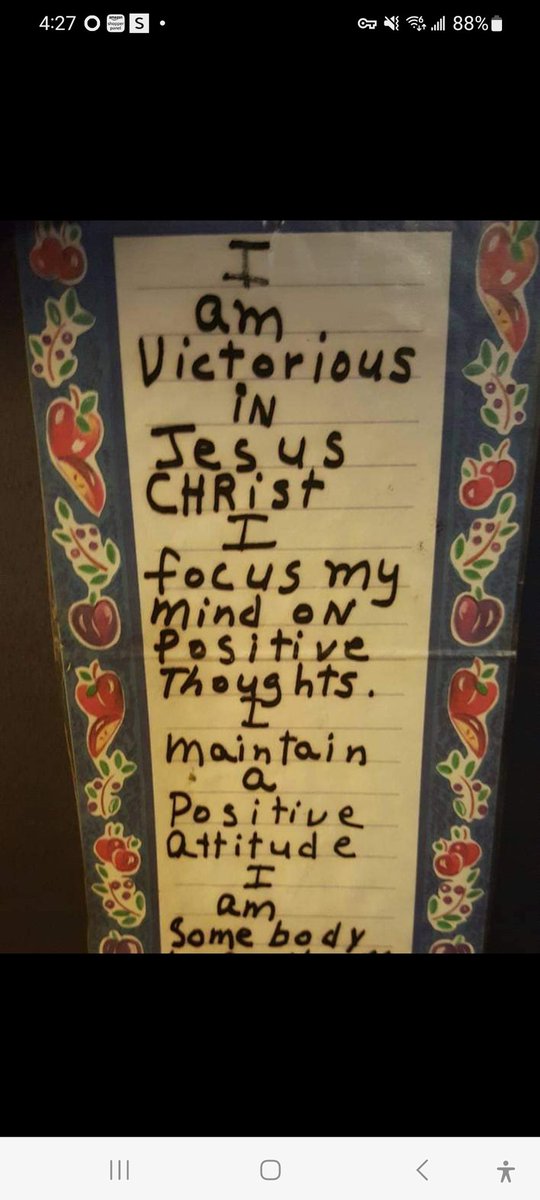 4:27
S
88%
I
am
Victorious
iN
Jesus
CHRist
I
focus my
mind oN
Positive
Thoughts.
I
maintain
a
Positive
attitude
I
am
Some body